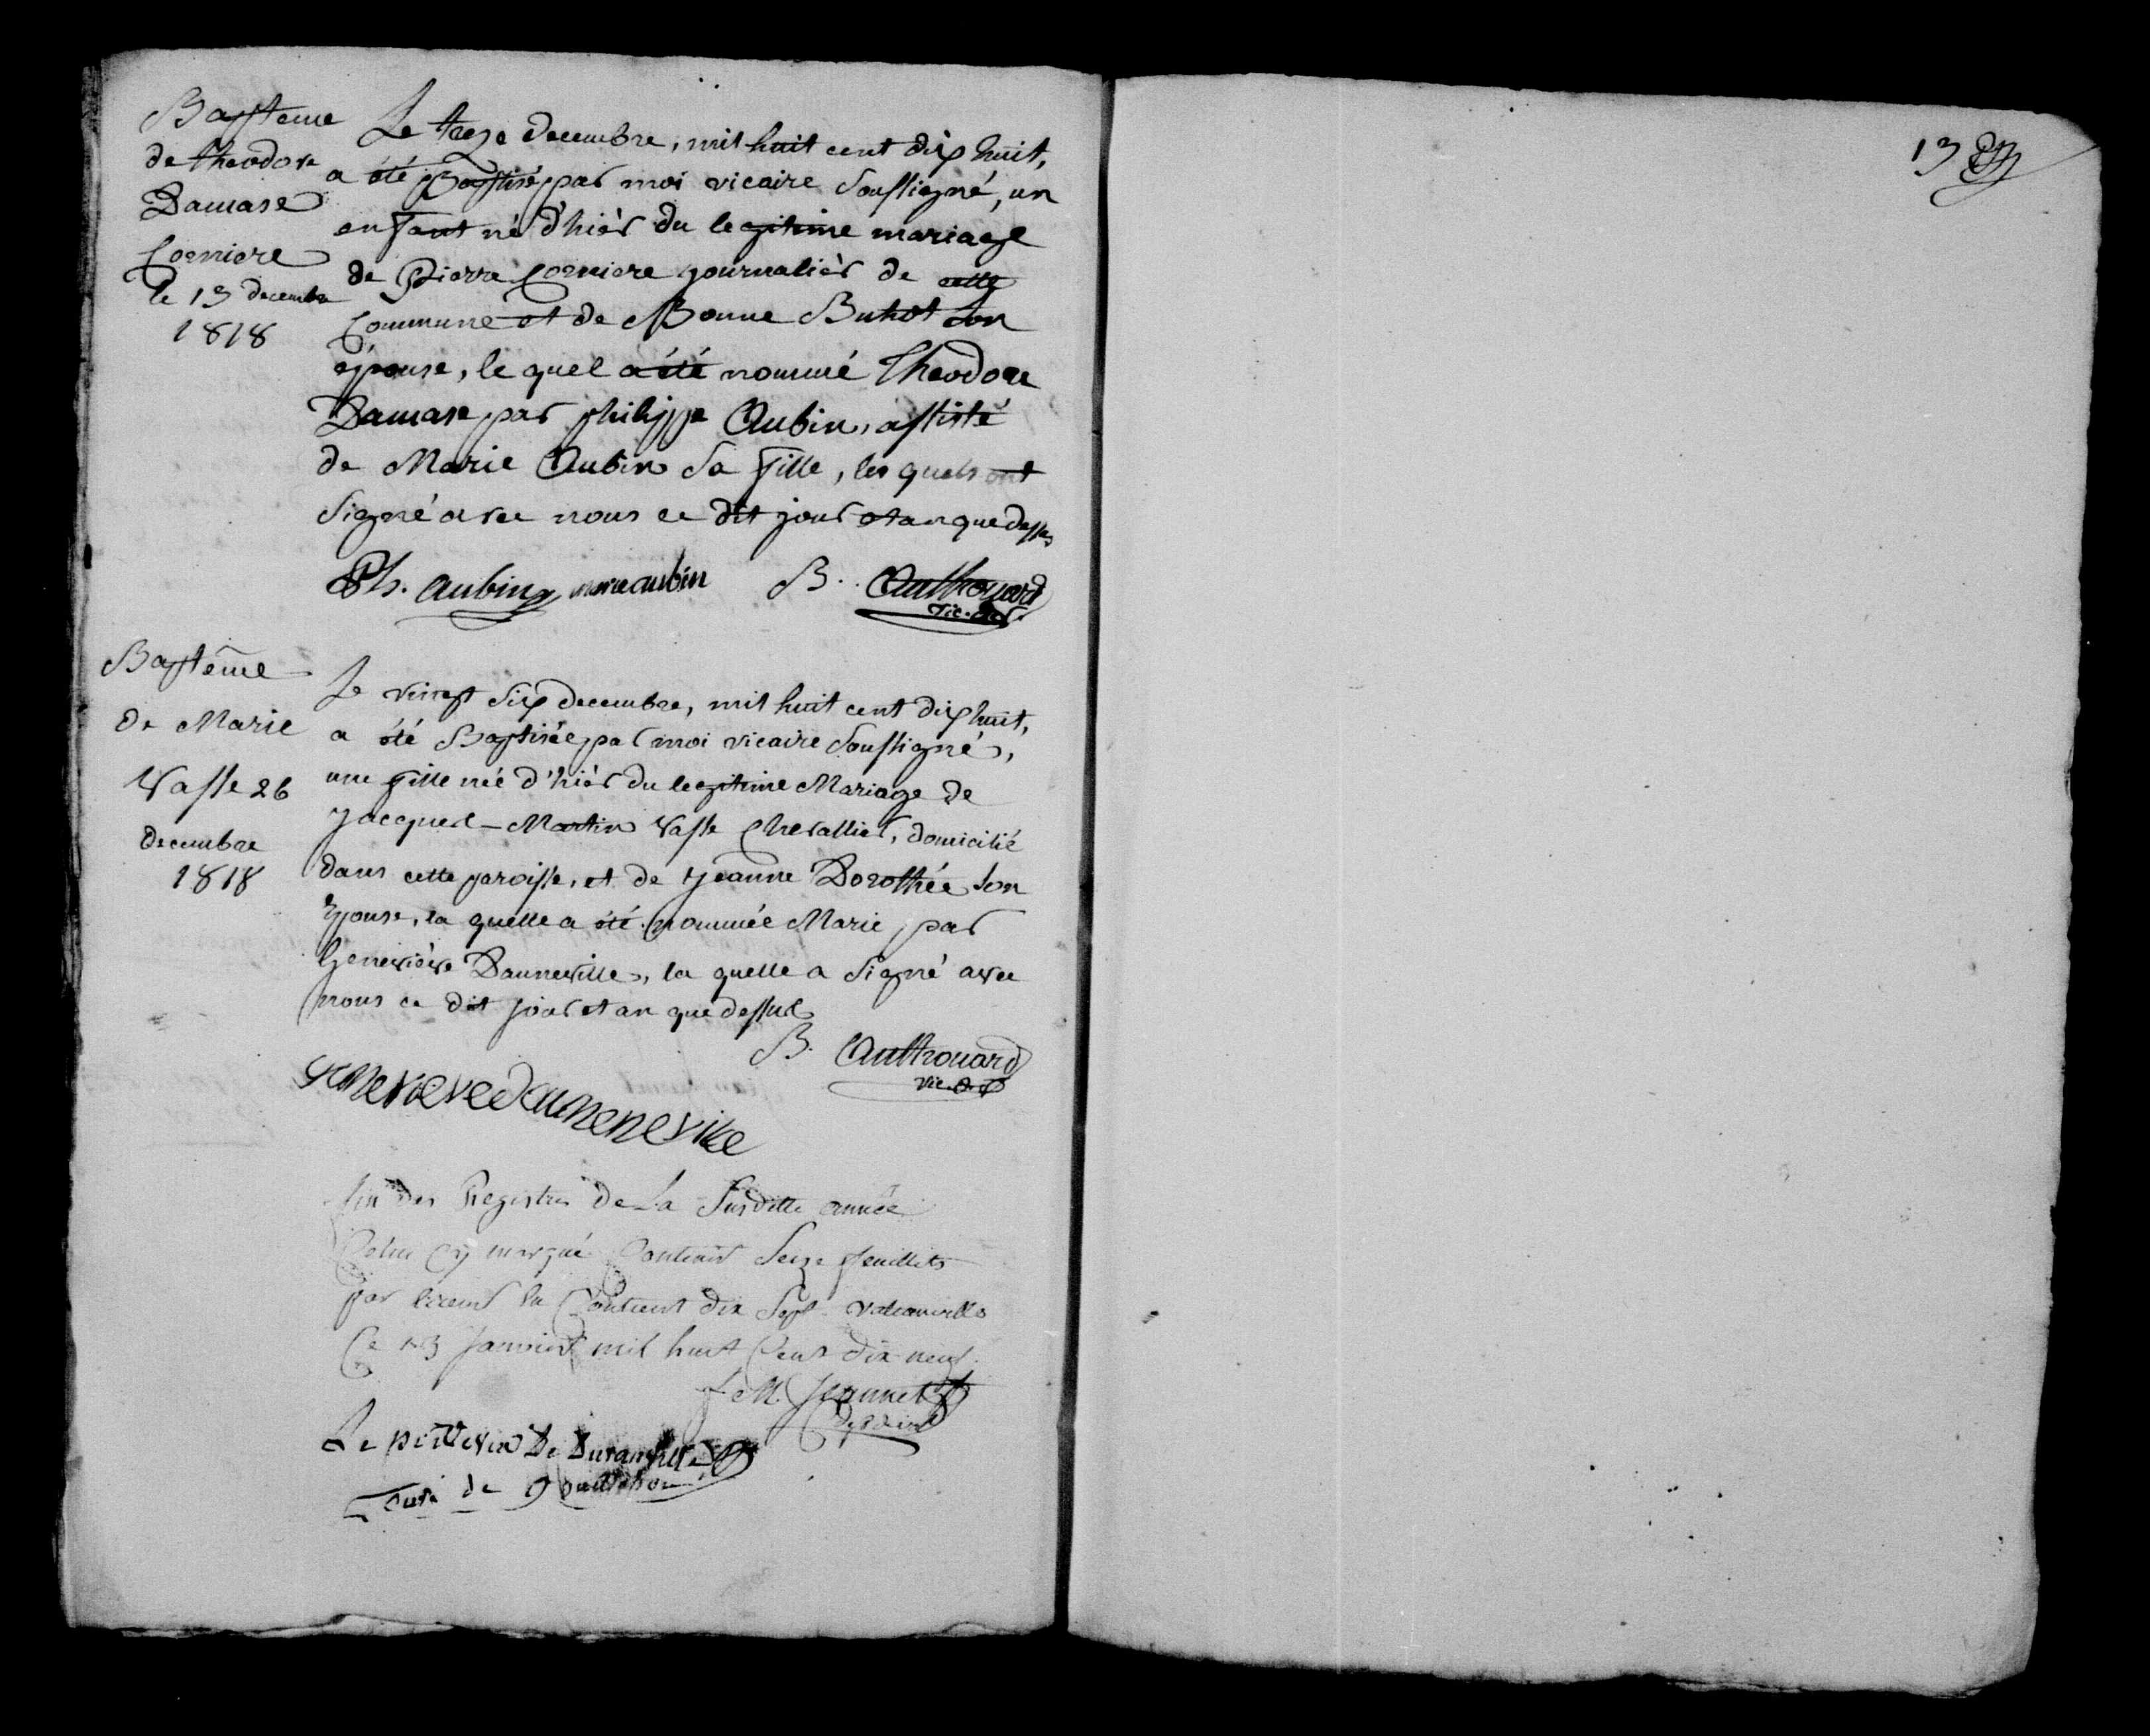 Bapteme
de theodore
Damase
Corniere
le 13 decembre
1818
Le treze decembre, mil huit cent dix huit,
a été Baptisé par moi vicaire soussigné, un
enfant né d'hièr du legitime mariage
de Pierre Corniere journalièr de cette
Commune et de Bonne Buhot son
épouse, le quel a été nommé Theodore
Damase par philippe Aubin, assisté
de Marie Aubin sa fille, les quels ont
signé avec nous ce dit jour et an que dessus
Ph. aubin marie aubin B. Authouard
vic.
Baptême
de Marie
Vasse 26
decembre
1818
Le vingt six decembre, mil huit cent dix huit,
a été Baptisée par moi vicaire soussigné,
une fille née d'hièr du legitime Mariage de
Jacques-Martin Vasse Chevallier, domicilié
dans cette paroisse, et de Jeanne Dorothée son
épouse, la quelle a été nommée Marie par
Genevieve Dauneville, la quelle a signé avec
nous ce dit jour et an que dessus
B. Authouard
vic.
genevieve dauneneville
fin des Registres de La susditte année
Celui cy marqué Contenir Seize feuillets
par Contient dix sept
Ce janvier mil huit Cent dix neuf.
Jeanne
Le De
Curé de
13